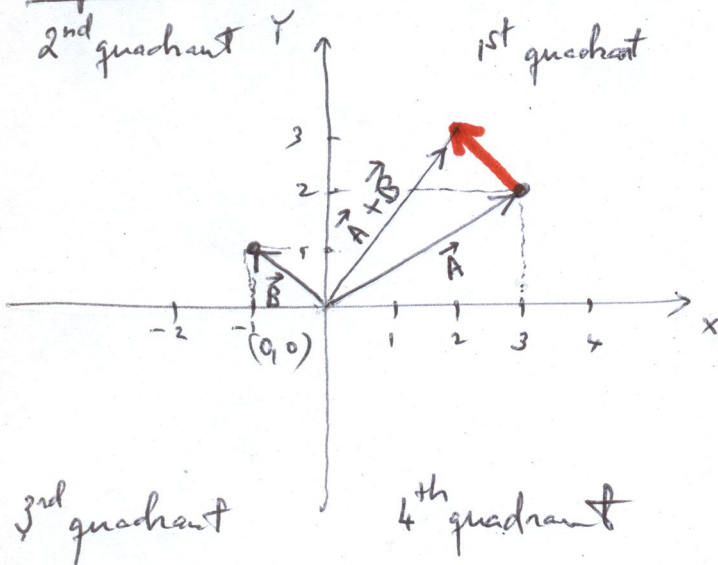 2nd quadrant Y 1st quadrant
3
2
A + B
1
A
B
-2 -1 1 2 3 4 X
(0,0)
3rd quadrant 4th quadrant